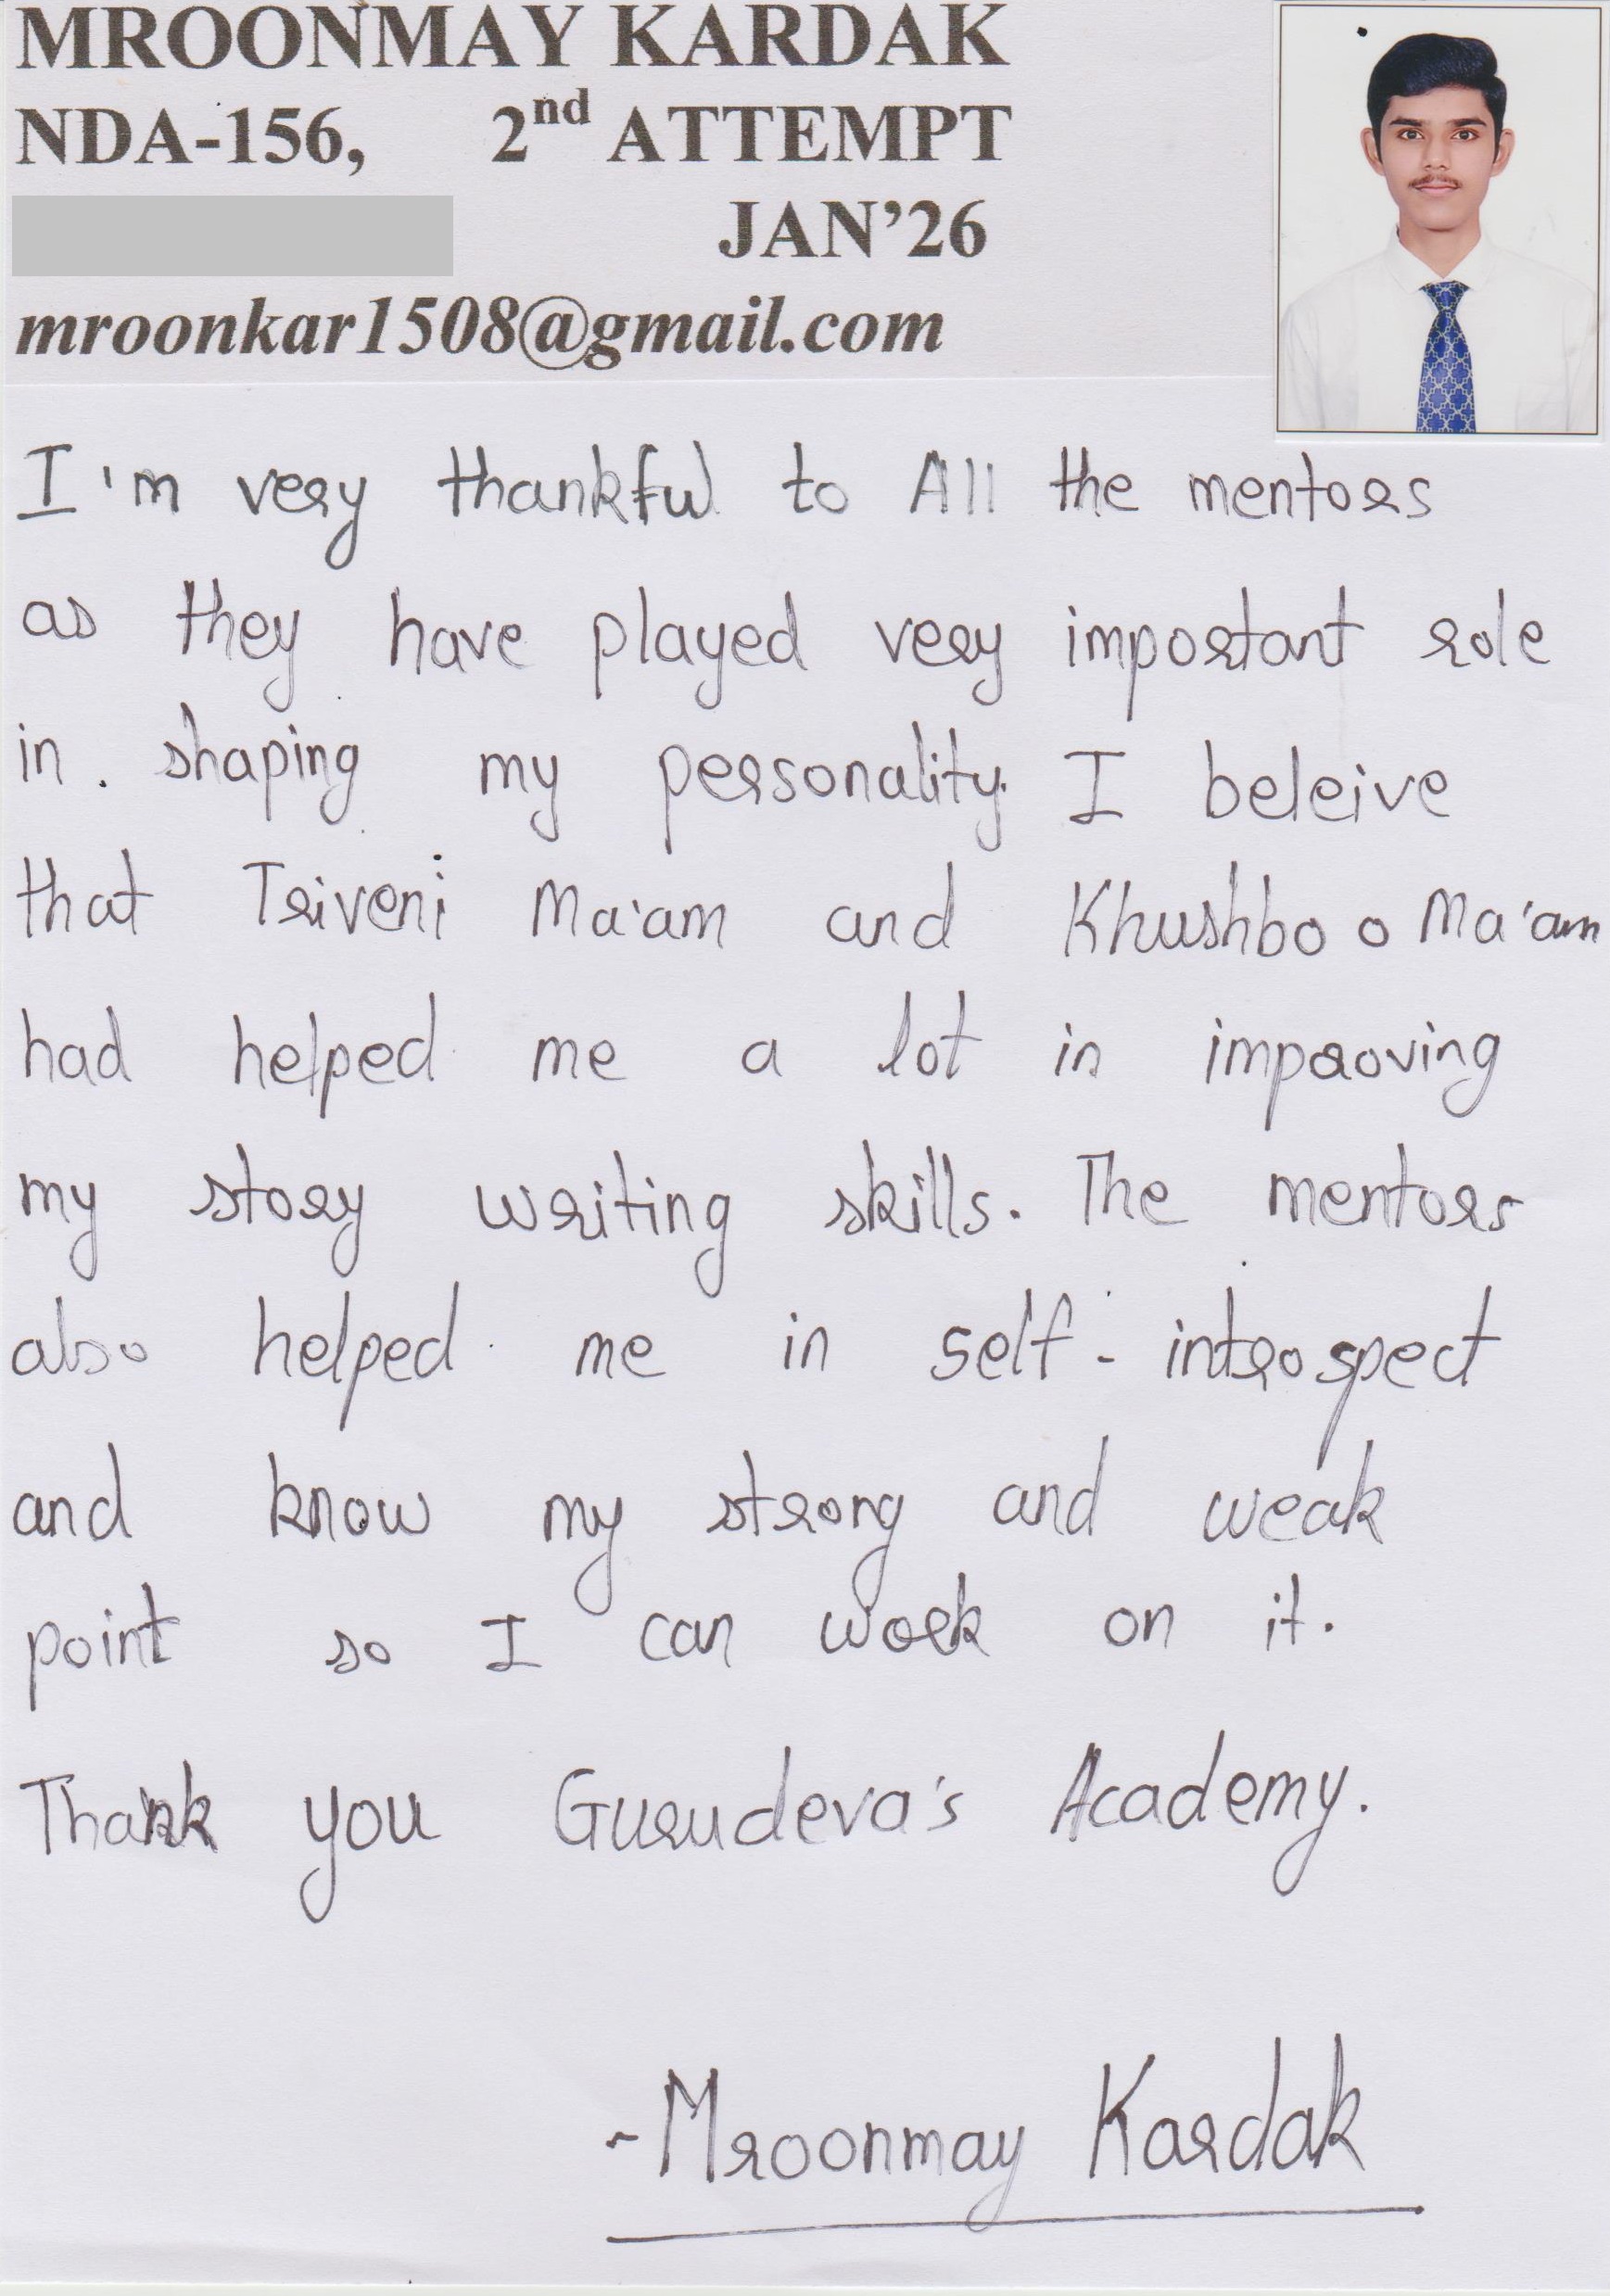 MROONMAY KARDAK
NDA-156, 2nd ATTEMPT
JAN'26
mroonkar1508@gmail.com
I'm very thankful to All the mentors
as they have played very important role
in. shaping my personality. I beleive
that Triveni Ma'am and Khushboo Ma'am
had helped me a lot in improving
my story writing skills. The mentors
also helped me in self-introspect
and know my strong and weak
point so I can work on it.
Thank you Gurudeva's Academy.
-Mroonmay Kardak